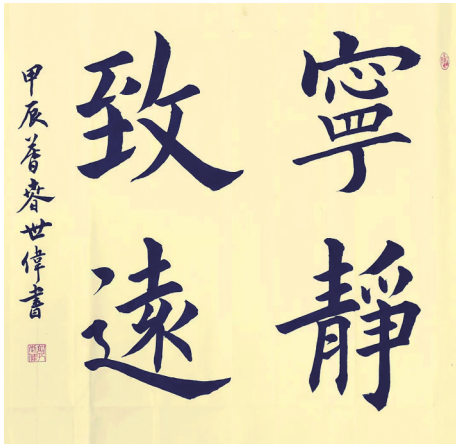 寧靜
致遠
甲辰暮春世偉書